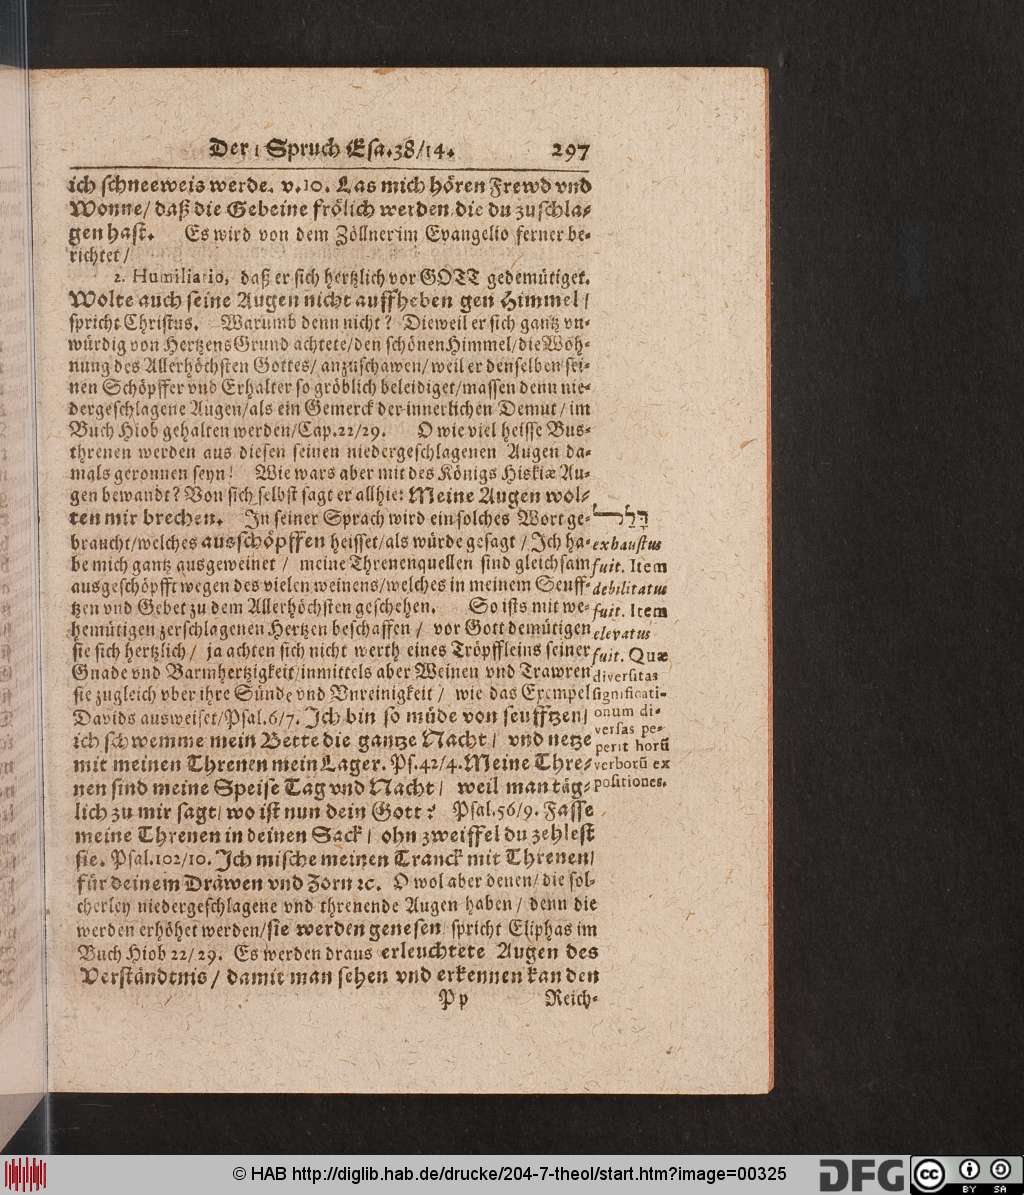 Der 1 Spruch Esa.38/14. 297
ich schneeweis werde. v.10. Las mich hören Frewd vnd
Wonne/ daß die Gebeine frölich werden/ die du zuschla-
gen hast. Es wird von dem Zöllner im Evangelio ferner be-
richtet/
2. Humiliatio, daß er sich hertzlich vor GOTT gedemütiget.
Wolte auch seine Augen nicht auffheben gen Himmel/
spricht Christus. Warumb denn nicht? Dieweil er sich gantz vn-
würdig von Hertzens Grund achtete/ den schönen Himmel/ die Woh-
nung des Allerhöchsten Gottes/ anzuschawen/ weil er denselben sei-
nen Schöpffer vnd Erhalter so gröblich beleidiget/ massen denn nie-
dergeschlagene Augen/ als ein Gemerck der innerlichen Demut/ im
Buch Hiob gehalten werden/ Cap.22/29. O wie viel heisse Bus-
threnen werden aus diesen seinen niedergeschlagenen Augen da-
mals geronnen seyn! Wie wars aber mit des Königs Hiskiæ Au-
gen bewandt? Von sich selbst sagt er allhie: Meine Augen wol-
ten mir brechen. In seiner Sprach wird ein solches Wort ge-
braucht/ welches ausschöpffen heisset/ als würde gesagt/ Ich ha-
be mich gantz ausgeweinet/ meine Threnenquellen sind gleichsam
ausgeschöpfft wegen des vielen weinens/ welches in meinem Seuff-
tzen vnd Gebet zu dem Allerhöchsten geschehen. So ists mit we-
hemütigen zerschlagenen Hertzen beschaffen/ vor Gott demütigen
sie sich hertzlich/ ja achten sich nicht werth eines Tröpffleins seiner
Gnade vnd Barmhertzigkeit/ inmittels aber Weinen vnd Trawren
sie zugleich vber ihre Sünde vnd Vnreinigkeit/ wie das Exempel
Davids ausweiset/ Psal.6/7. Ich bin so müde von seufftzen/
ich schwemme mein Bette die gantze Nacht/ vnd netze
mit meinen Threnen mein Lager. Ps.42/4. Meine Thre-
nen sind meine Speise Tag vnd Nacht/ weil man täg-
lich zu mir sagt/ wo ist nun dein Gott? Psal.56/9. Fasse
meine Threnen in deinen Sack/ ohn zweiffel du zehlest
sie. Psal.102/10. Ich mische meinen Tranck mit Threnen/
für deinem Dräwen vnd Zorn ꝛc. O wol aber denen/ die sol-
cherley niedergeschlagene vnd threnende Augen haben/ denn die
werden erhöhet werden/ sie werden genesen/ spricht Eliphas im
Buch Hiob 22/29. Es werden draus erleuchtete Augen des
Verständtnis/ damit man sehen vnd erkennen kan den
Pp Reich-
דָּלַל
exhaustus
fuit. Item
debilitatus
fuit. Item
elevatus
fuit. Quæ
diversitas
significati-
onum di-
versas pe-
perit horũ
verborũ ex
positiones.
© HAB http://diglib.hab.de/drucke/204-7-theol/start.htm?image=00325
DFG
cc BY SA